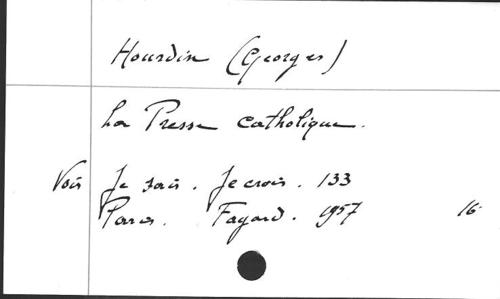 Hourdin (Georges)
La Presse catholique.
Voir Je sais. Je crois. 133
Paris. Fayard. 1957 16